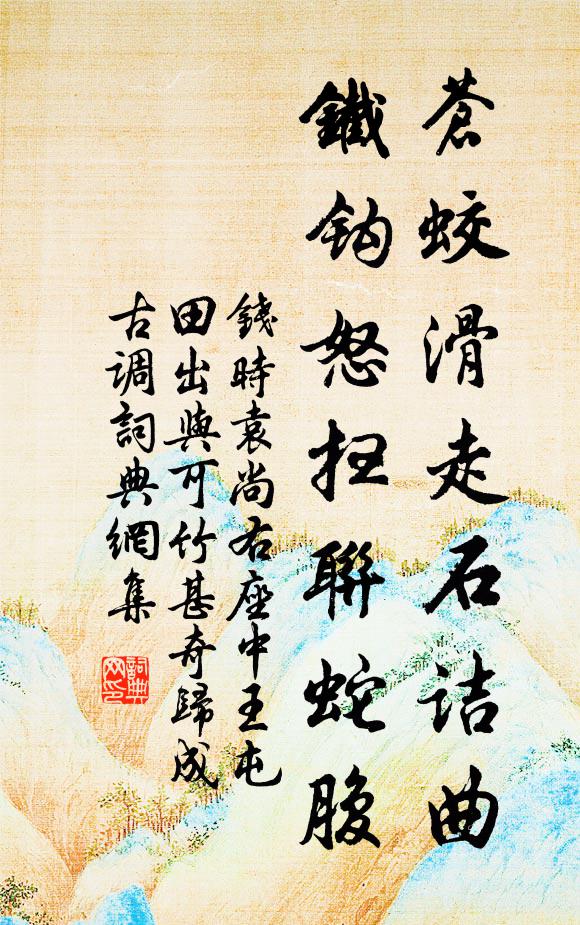 蒼蛟滑走石詰曲
鐵鈎怒扭聯蛇腹
錢時袁尚右座中王屯
田出與可竹甚奇歸成
古調詞典網集
詞典
網印